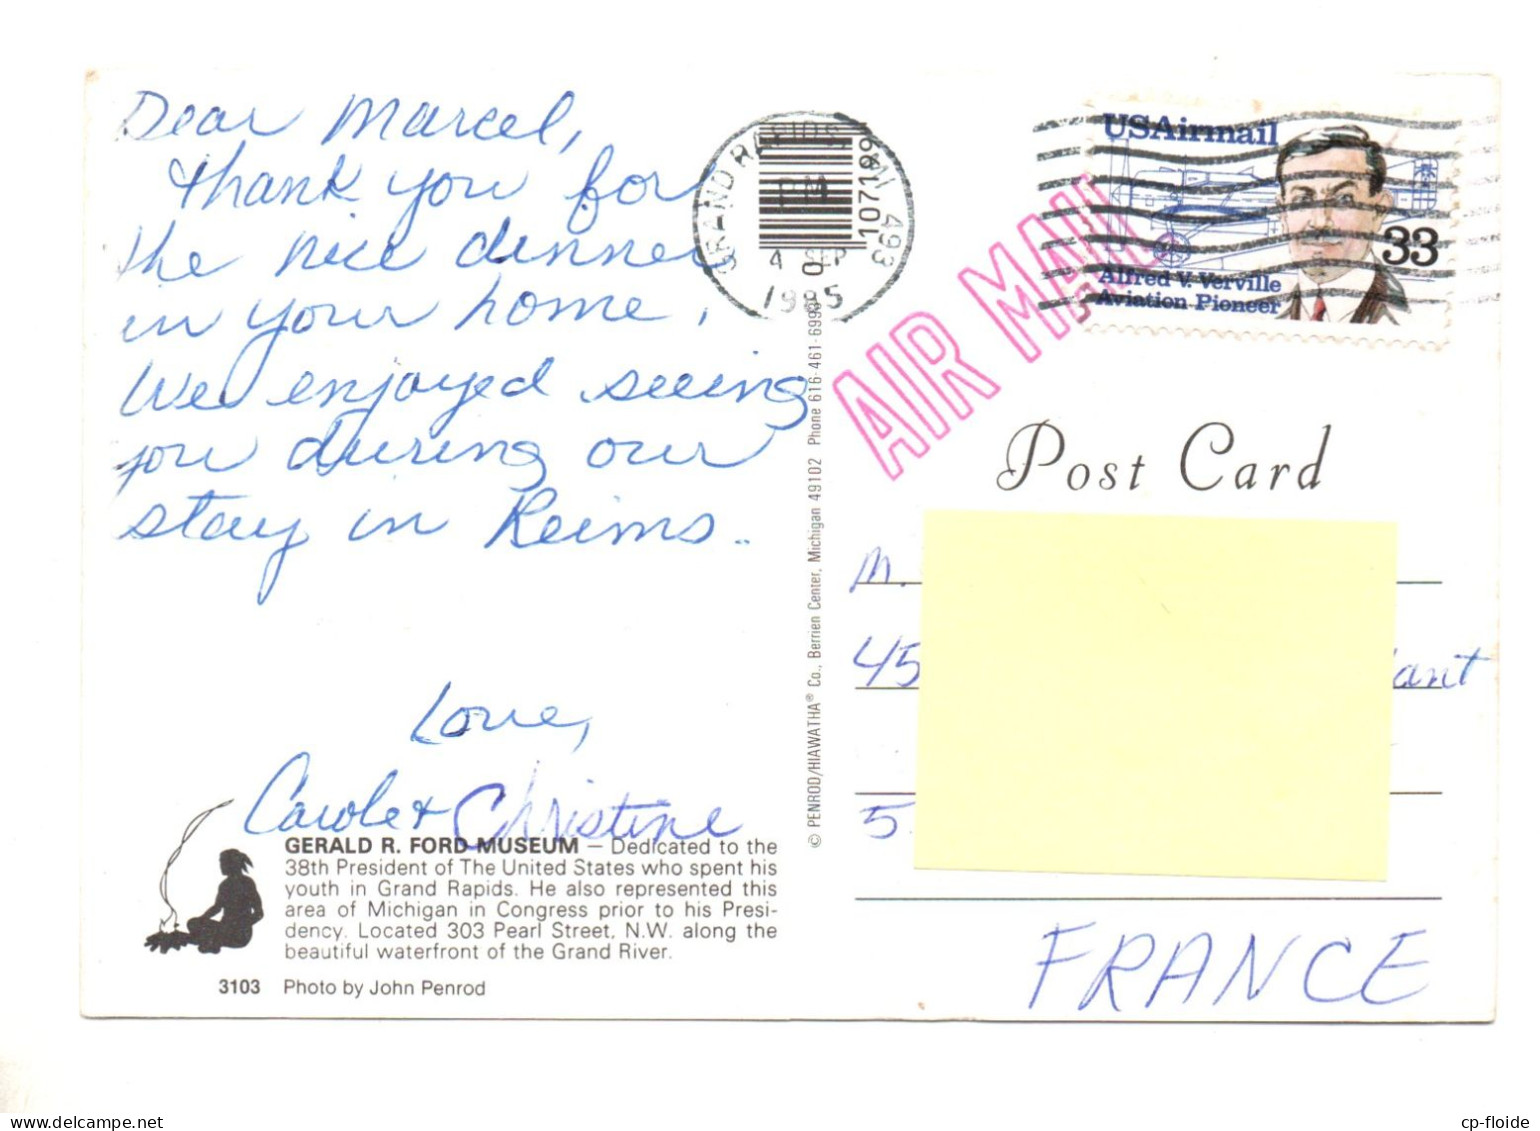 Dear Marcel,
thank you for
the nice dinner
in your home.
We enjoyed seeing
you during our
stay in Reims..
Love,
Carole & Christine
GERALD R. FORD MUSEUM — Dedicated to the
38th President of The United States who spent his
youth in Grand Rapids. He also represented this
area of Michigan in Congress prior to his Presi-
dency. Located 303 Pearl Street, N.W. along the
beautiful waterfront of the Grand River.
3103 Photo by John Penrod
© PENROD/HIAWATHA® Co., Berrien Center, Michigan 49102 Phone 616-461-6993
GRAND RAPIDS, MI 493
PM
4 SEP
0
1985
107199
AIR MAIL
USAirmail
33
Alfred V. Verville
Aviation Pioneer
Post Card
M.
45
ant
5
FRANCE
cp-floide